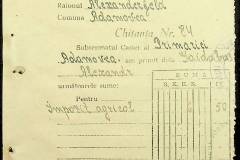 Raionul Alexanderfeld
Comuna Adamovca
Chitanța Nr. 24
Subsemnatul Casier al Primăriei
Adamovca am primit dela
Alexandr
următoarele sume:
Pentru
SUMA
Impozit agricol 50